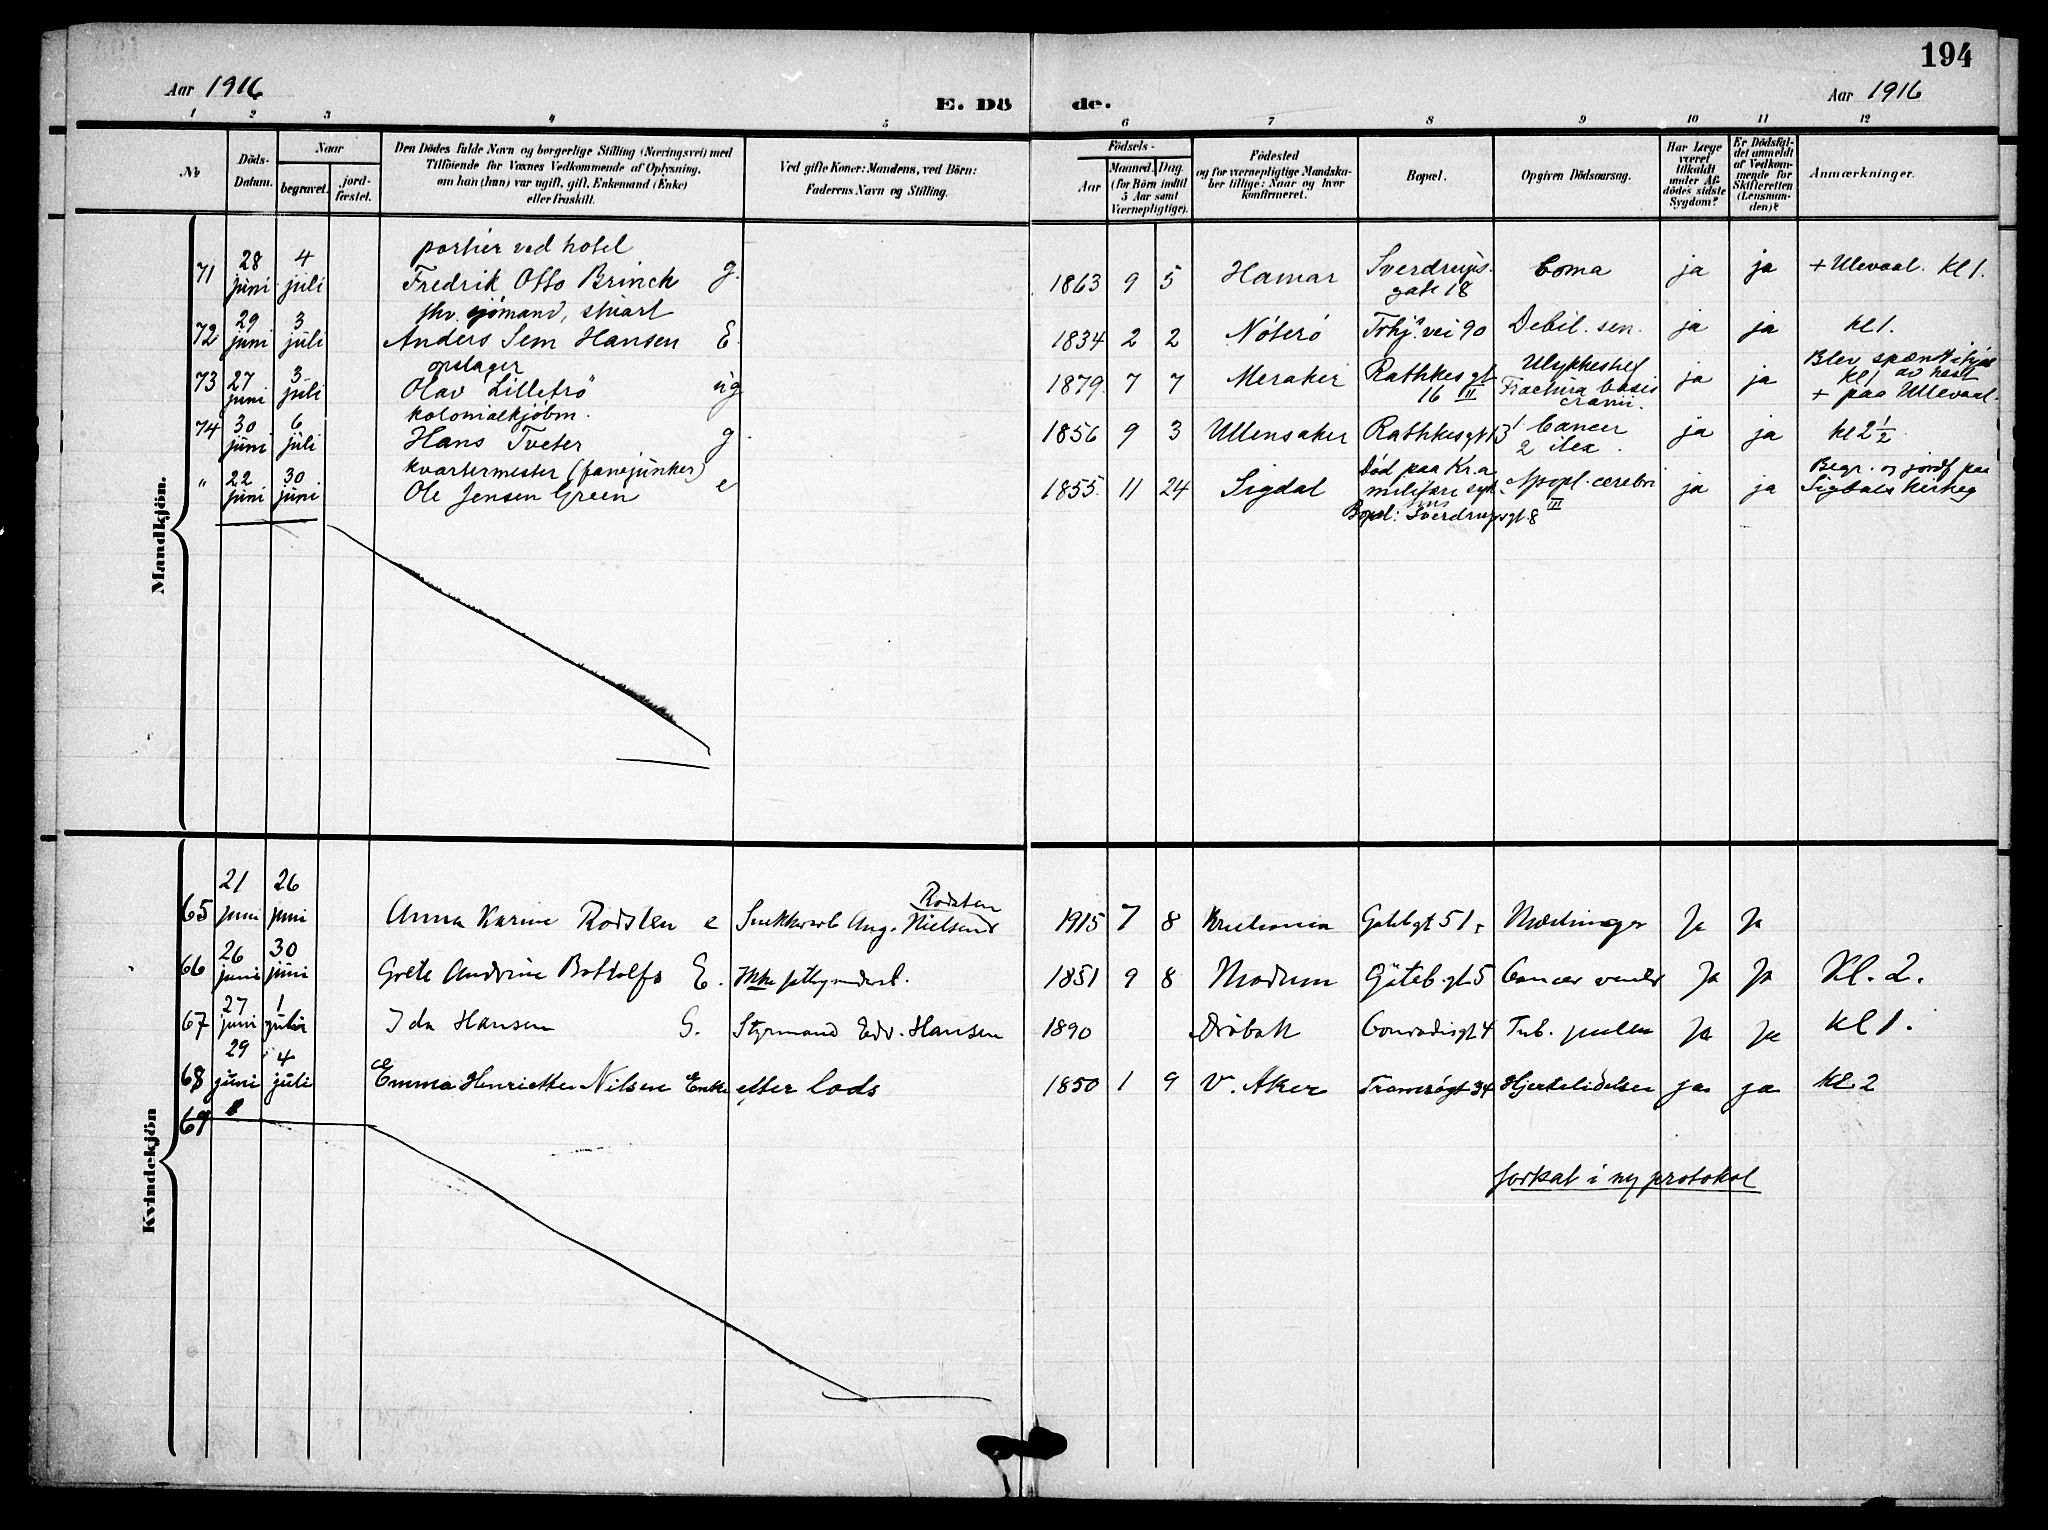 194
Aar 1916
E. Dö
de.
Aar 1916
1 2 3 4 5 6 7 8 9 10 11 12
No
Döds-
Datum.
Naar
begravet.
jord-
fæstet.
Den Dödes fulde Navn og borgerlige Stilling (Næringsvei) med
Tilföiende for Voxnes Vedkommende af Oplysning,
om han (hun) var ugift, gift, Enkemand (Enke)
eller fraskilt.
Ved gifte Koner: Mandens, ved Börn:
Faderens Navn og Stilling.
Födsels-
Aar
Maaned. Dag.
(for Börn indtil
5 Aar samt
Værnepligtige).
Födested
og for værnepligtige Mandska-
ber tillige: Naar og hvor
konfirmeret.
Bopæl.
Opgiven Dödsaarsag.
Har Læge
været
tilkaldt
under Af-
dödes sidste
Sygdom?
Er Dödsfal-
det anmeldt
af Vedkom-
mende for
Skifteretten
(Lensman-
den)?
Anmærkninger.
Mandkjön.
portier ved hotel
71 28 juni 4 juli Fredrik Otto Brinck g. 1863 9 5 Hamar Sverdrups-gate 18 Coma ja ja + Ulevaal. Kl 1.
fhv. sjömand, stuart
72 29 juni 3 juli Anders Sem Hansen E. 1834 2 2 Nöterö vei 90 Debil. sen. ja ja kl 1.
opslager
73 27 juni 3 juli Olav Lilletrö ug 1879 7 7 Meraker Rathkesgt 16 II Ulykkestilf Fractura basis cranii. ja ja Blev spændt ihjel av hest kl 1 + paa Ullevaal.
kolonialkjöbm.
74 30 juni 6 juli Hans Tveter g. 1856 9 3 Ullensaker Rathkesgt 13 1 Cancer 2 ja ja kl 2 1/2
kvartermester (fanejunker)
" 22 juni 30 juni Ole Jensen Green e 1855 11 24 Sigdal Död paa Kr.a militære syk-hus Bopæl: Sverdrupsgt. 8 III Apopl. cerebri ja ja Begr. og jordf paa Sigdals kirkeg
Kvindekjön
65 21 juni 26 juni Anna Karine Rodsten e Snekkerarb Aug. Nielsen Rodsten 1915 7 8 Kristiania Gøtebgt 51 Mæslinger Ja Ja
66 26 juni 30 juni Grete Andrine Bottolfs E. Ikke 1851 9 8 Modum Götebgt 5 Cancer Ja Ja Kl. 2.
67 27 juni 1 juli Ida Hansen G. Styrmand Edv. Hansen 1890 Dröbak Conradisgt 4 Tub. pulm Ja Ja Kl 1.
68 29 juni 4 juli Emma Henriette Nilsen Enke efter lods 1850 1 9 V. Aker Tromsögt 34 Hjertelidelse ja ja kl. 2
69
forts­at i ny protokol